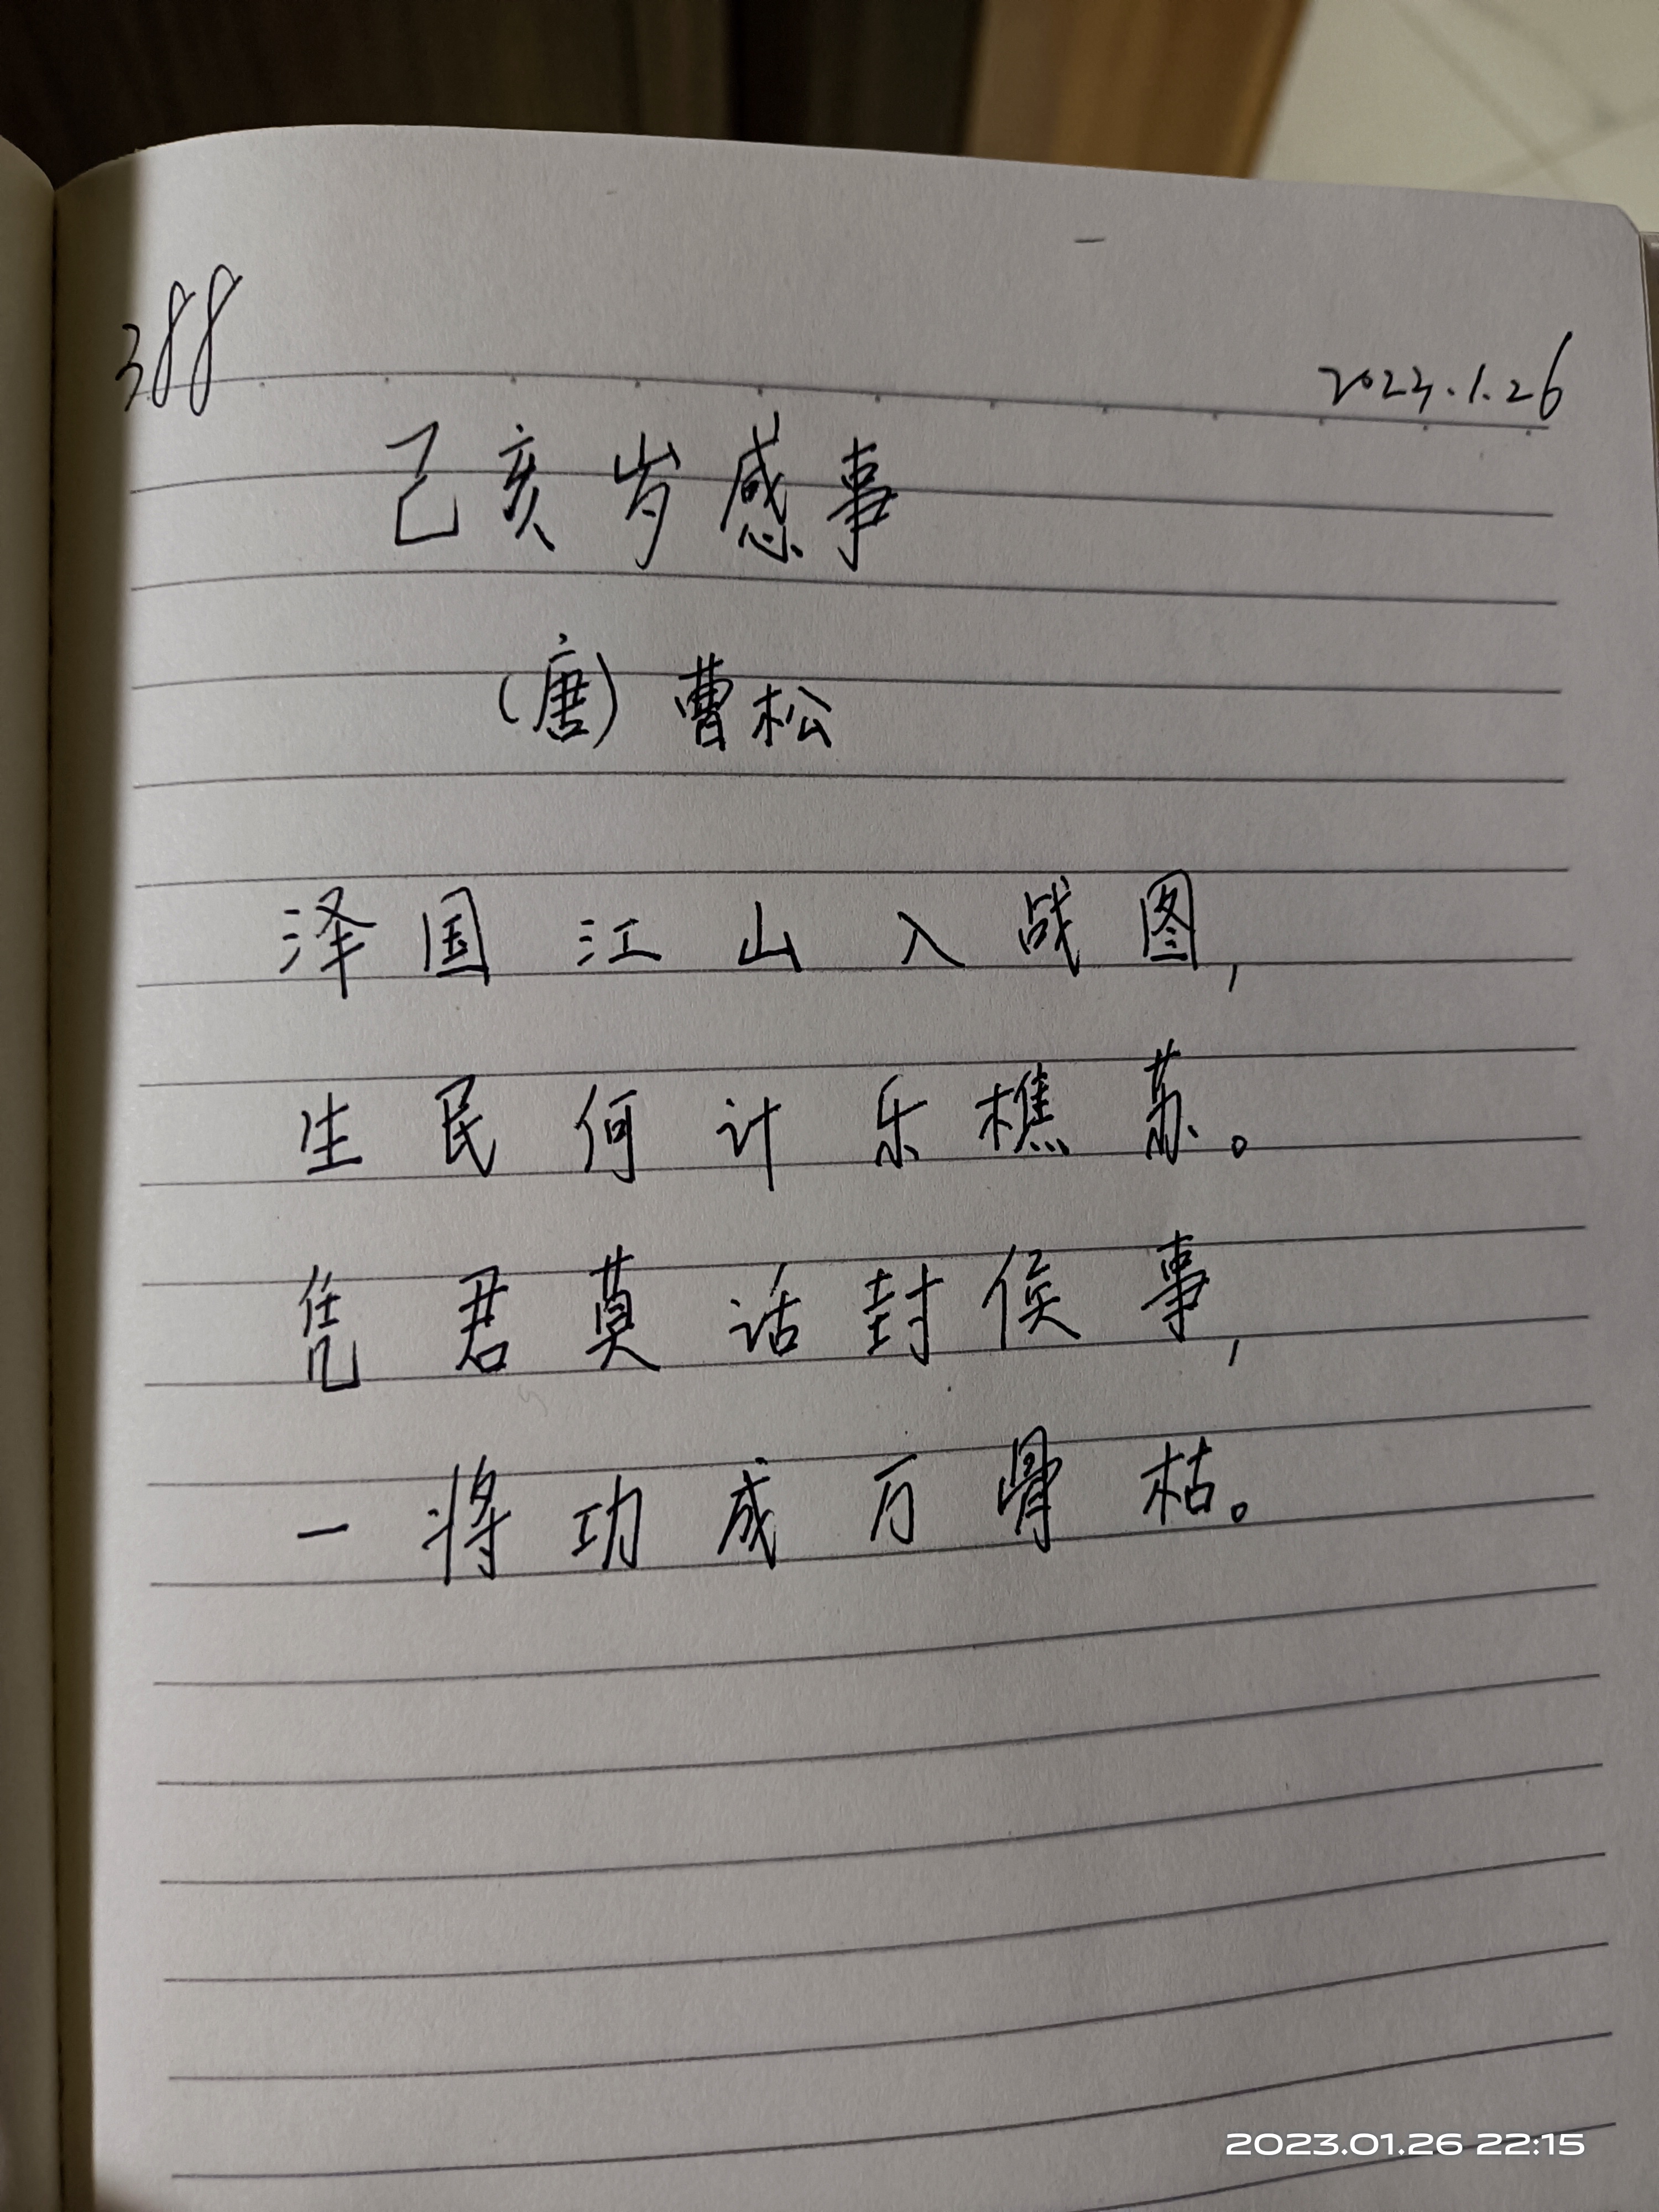 388
2023.1.26
己亥岁感事
(唐) 曹松
泽国江山入战图,
生民何计乐樵苏。
凭君莫话封侯事,
一将功成万骨枯。
2023.01.26 22:15